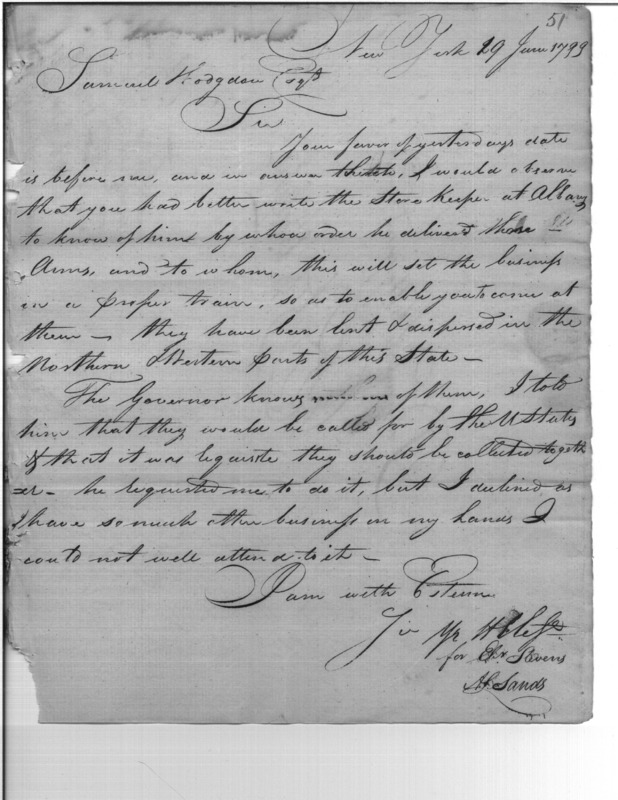 51
New York 29 June 1799
Samuel Hodgdon Esqr
Sir
Your favor of yesterdays date
is before me, and in answer thereto, I would observe
that you had better write the Store Keeper at Albany
to know of him by whose order he deliverd those
Arms, and to whom, this will set the business
in a proper train, so as to enable you to come at
them — they have been lent & dispersed in the
Northern & Western parts of this State —
The Governor knows of them, I told
him that they would be called for by the U States
& that it was requisite they should be collected togeth
er — he requested me to do it, but I declined as
I have so much other business on my hands I
could not well attend to it —
I am with Esteem
Sir Yr
for Stevens
Sands